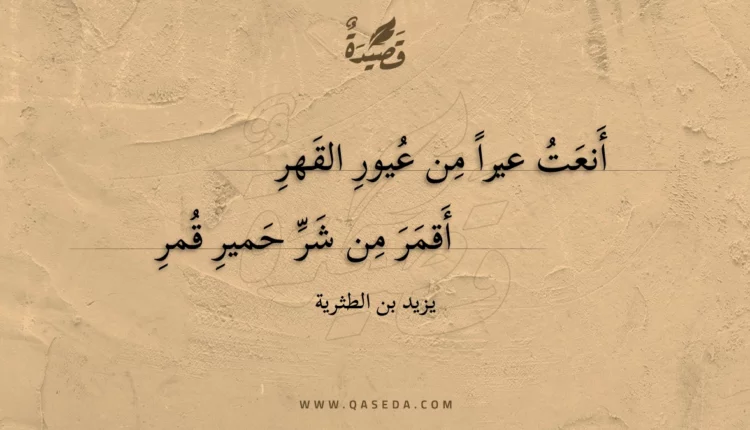 قَصِيْدَةٌ
أَنعَتُ عيراً مِن عُيورِ القَهرِ
أَقمَرَ مِن شَرِّ حَميرِ قُمرِ
يزيد بن الطثرية
WWW.QASEDA.COM